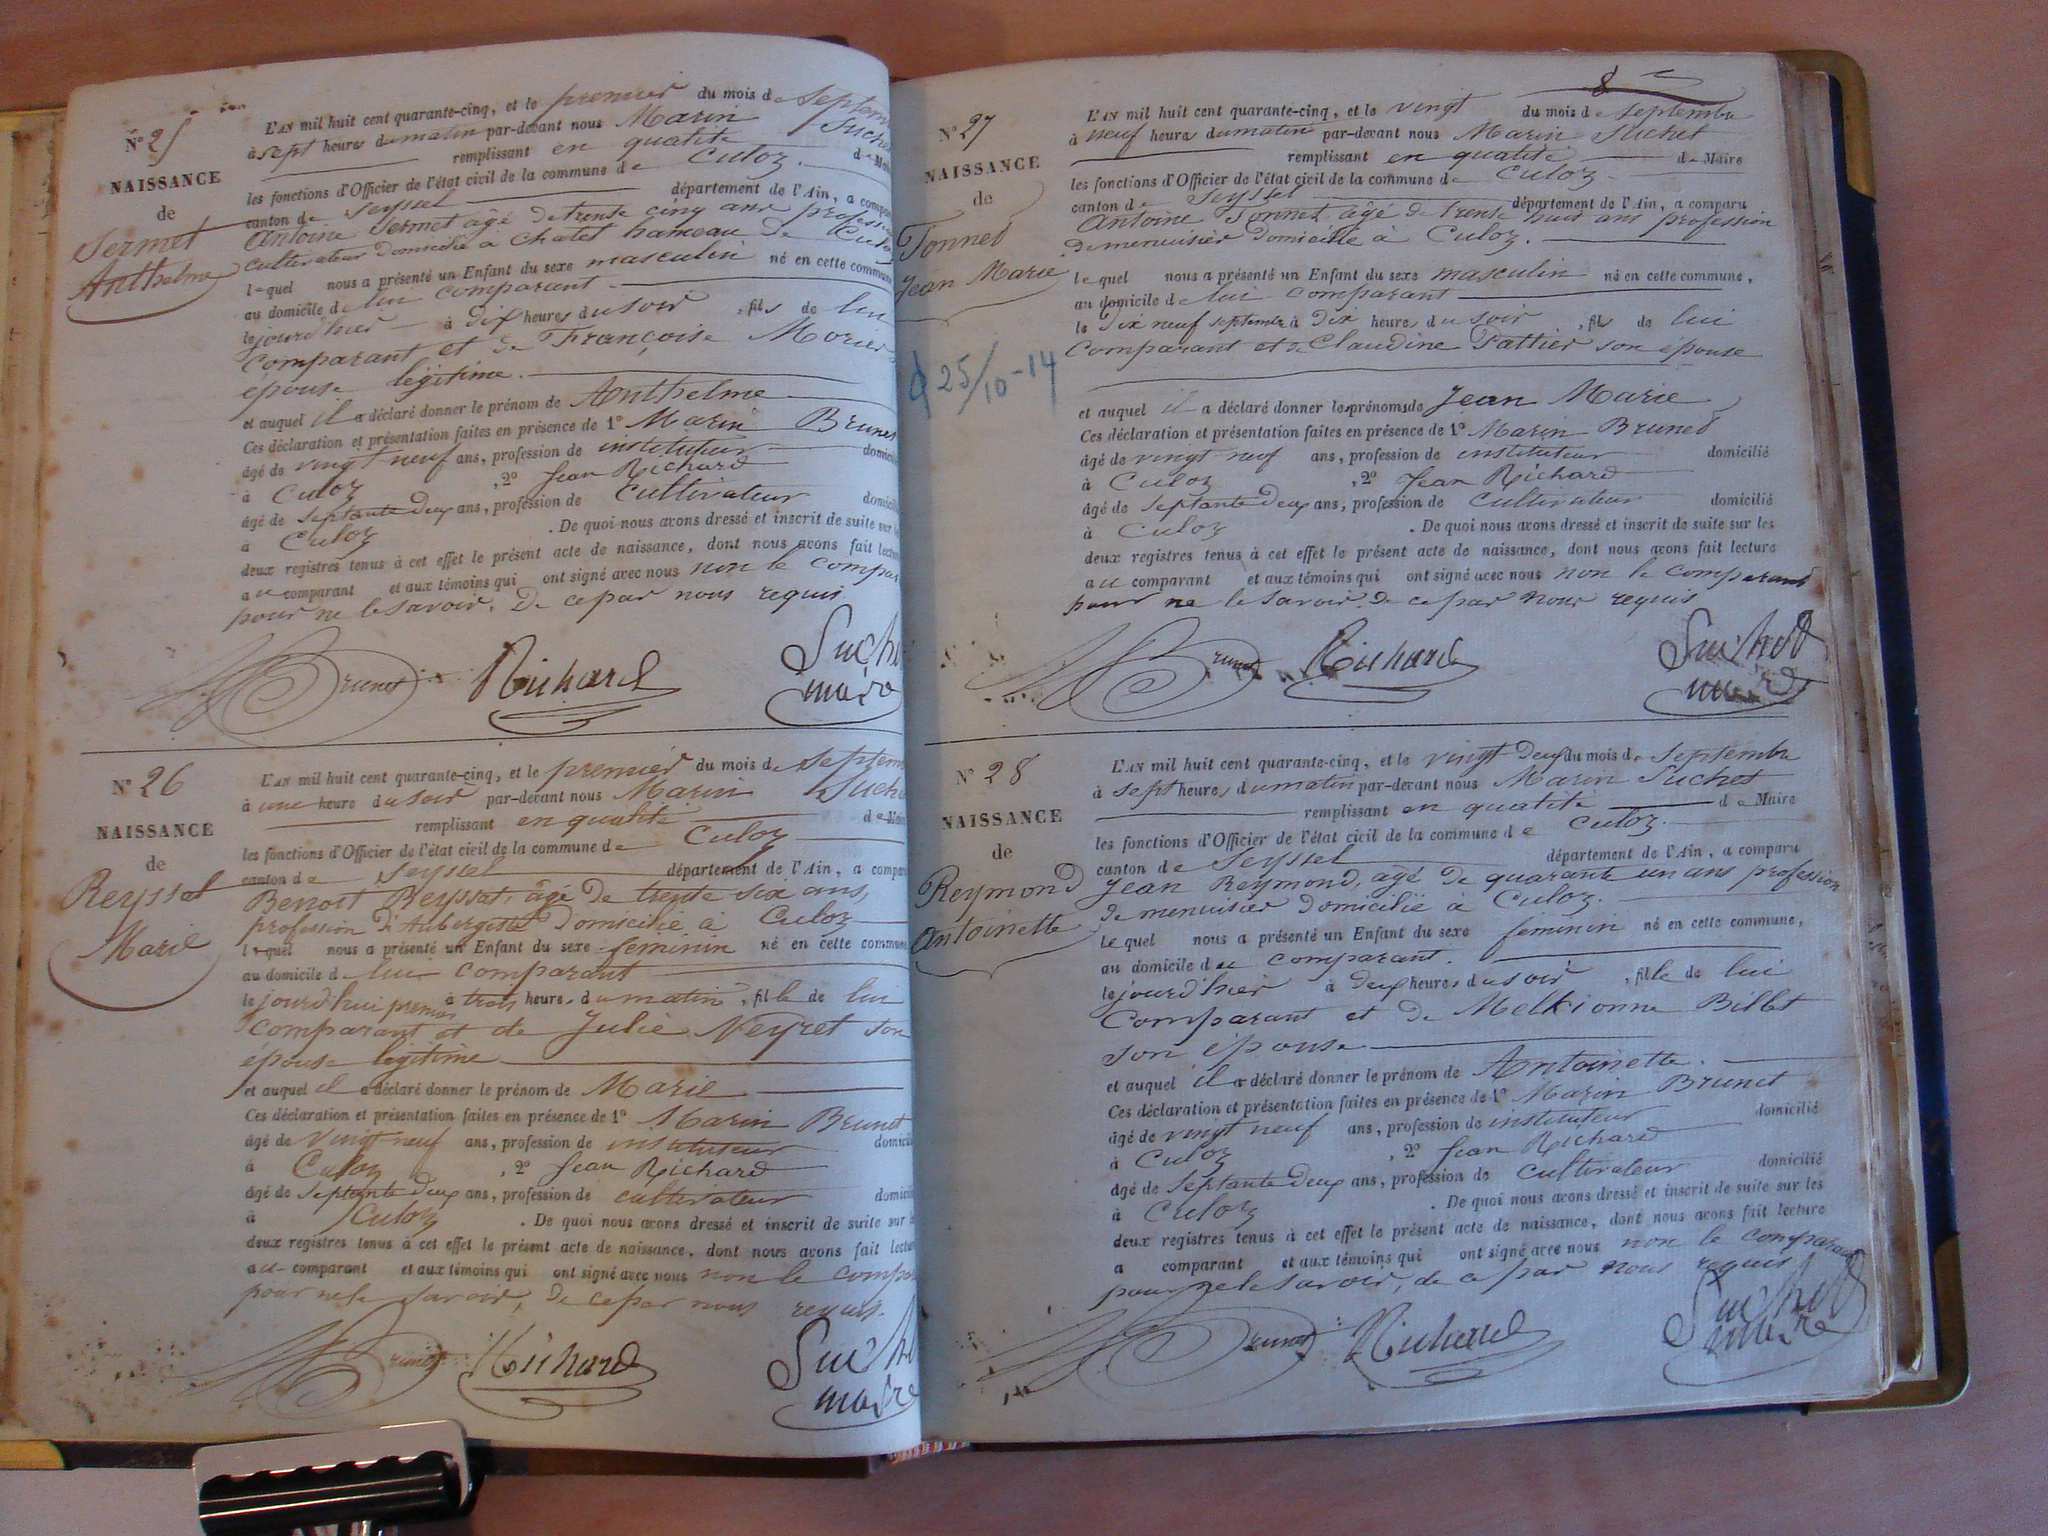 N° 25
NAISSANCE
de
Sermet
Anthelme
L'AN mil huit cent quarante-cinq, et le premier du mois de Septem
à sept heures du matin par-devant nous Marin Suchet
remplissant en qualité de Maire
les fonctions d'Officier de l'état civil de la commune de Culoz.
canton de Seyssel département de l'Ain, a comparu
Antoine Sermet âgé de trente cinq ans profession
cultivateur domicilié à Chatel hameau de Culoz
lequel nous a présenté un Enfant du sexe masculin né en cette commune
au domicile de lui comparant
le jourd'hier à dix heures du soir, fils de lui
comparant et de Françoise Morier
épouse légitime.
et auquel il a déclaré donner le prénom de Anthelme
Ces déclaration et présentation faites en présence de 1° Marin Brunet
âgé de vingt neuf ans, profession de instituteur domicilié
à Culoz, 2° Jean Richard
âgé de septante deux ans, profession de cultivateur domicilié
à Culoz. De quoi nous avons dressé et inscrit de suite sur les
deux registres tenus à cet effet le présent acte de naissance, dont nous avons fait lecture
au comparant et aux témoins qui ont signé avec nous non le compar
pour ne le savoir, de ce par nous requis
Brunet Richard Suchet
maire
N° 26
NAISSANCE
de
Reyssat
Marie
L'AN mil huit cent quarante-cinq, et le premier du mois de Septem
à une heure du soir par-devant nous Marin Suchet
remplissant en qualité de Maire
les fonctions d'Officier de l'état civil de la commune de Culoz
canton de Seyssel département de l'Ain, a comparu
Benoit Reyssat, âgé de trente six ans,
profession d'Aubergiste domicilié à Culoz
lequel nous a présenté un Enfant du sexe feminin né en cette commune
au domicile de lui comparant
le jourd'hui premier à trois heures du matin, fille de lui
comparant et de Julie Neyret son
épouse légitime
et auquel il a déclaré donner le prénom de Marie
Ces déclaration et présentation faites en présence de 1° Marin Brunet
âgé de vingt neuf ans, profession de instituteur domicilié
à Culoz, 2° Jean Richard
âgé de septante deux ans, profession de cultivateur domicilié
à Culoz. De quoi nous avons dressé et inscrit de suite sur les
deux registres tenus à cet effet le présent acte de naissance, dont nous avons fait lecture
au comparant et aux témoins qui ont signé avec nous non le compar
pour ne le savoir, de ce par nous requis.
Brunet Richard Suchet
maire
8
N° 27
NAISSANCE
de
Tonnet
Jean Marie
25/10-14
L'AN mil huit cent quarante-cinq, et le vingt du mois de Septembre
à neuf heures du matin par-devant nous Marin Suchet
remplissant en qualité de Maire
les fonctions d'Officier de l'état civil de la commune de Culoz
canton de Seyssel département de l'Ain, a comparu
Antoine Tonnet âgé de trente huit ans profession
de menuisier domicilié à Culoz.
lequel nous a présenté un Enfant du sexe masculin né en cette commune,
au domicile de lui comparant
le dix neuf septembre à dix heures du soir, fils de lui
comparant et de Claudine Pattier son épouse
et auquel il a déclaré donner les prénoms de Jean Marie
Ces déclaration et présentation faites en présence de 1° Marin Brunet
âgé de vingt neuf ans, profession de instituteur domicilié
à Culoz, 2° Jean Richard
âgé de septante deux ans, profession de cultivateur domicilié
à Culoz. De quoi nous avons dressé et inscrit de suite sur les
deux registres tenus à cet effet le présent acte de naissance, dont nous avons fait lecture
au comparant et aux témoins qui ont signé avec nous non le comparant
pour ne le savoir de ce par nous requis
Brunet Richard Suchet
maire
N° 28
NAISSANCE
de
Reymond
Antoinette
L'AN mil huit cent quarante-cinq, et le vingt deux du mois de Septembre
à sept heures du matin par-devant nous Marin Suchet
remplissant en qualité de Maire
les fonctions d'Officier de l'état civil de la commune de Culoz.
canton de Seyssel département de l'Ain, a comparu
Jean Reymond, âgé de quarante un ans profession
de menuisier domicilié à Culoz.
lequel nous a présenté un Enfant du sexe feminin né en cette commune,
au domicile du comparant.
le jourd'hier à deux heures du soir, fille de lui
comparant et de Melkionne Billet
son épouse
et auquel il a déclaré donner le prénom de Antoinette.
Ces déclaration et présentation faites en présence de 1° Marin Brunet
âgé de vingt neuf ans, profession de instituteur domicilié
à Culoz, 2° Jean Richard
âgé de septante deux ans, profession de cultivateur domicilié
à Culoz. De quoi nous avons dressé et inscrit de suite sur les
deux registres tenus à cet effet le présent acte de naissance, dont nous avons fait lecture
a comparant et aux témoins qui ont signé avec nous non le comparant
pour ne le savoir, de ce par nous requis
Brunet Richard Suchet
maire